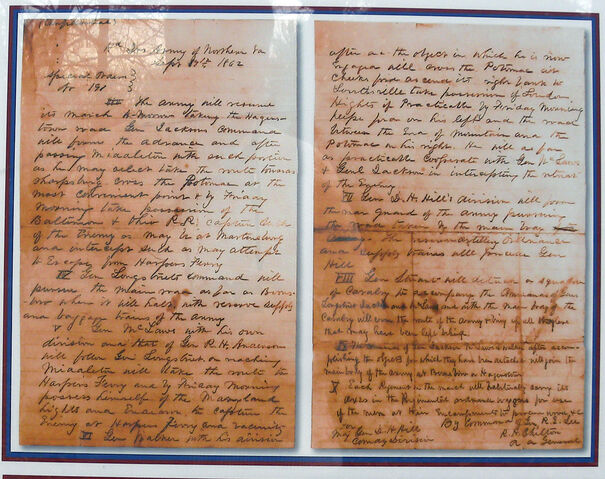 Hd Qrs Army of Northern Va
Sept 9th 1862
Special Orders
No 191
III The army will resume
its march to-morrow taking the Hagers-
town road Gen Jacksons Command
will form the advance and after
passing Middleton with such portion
as he may select take the route towards
Sharpsburg cross the Potomac at the
most convenient point & by Friday
Morning take possession of the
Baltimore & Ohio R.R. capture such
of the Enemy as may be at Martinsburg
and intercept such as may attempt
to Escape from Harpers Ferry
IV Gen Longstreets command will
pursue the main road as far as Boons-
boro where it will halt with reserve supply
and baggage trains of the army
V Gen McLaws with his own
division and that of Gen R. H. Anderson
will follow Gen Longstreet on reaching
Middleton will take the route to
Harpers Ferry and by Friday Morning
possess himself of the Maryland
heights and Endeavor to capture the
Enemy at Harpers Ferry and vicinity
VI Gen Walker with his division
after accomplishing the object in which he is now
Engaged will cross the Potomac at
Cheeks ford ascend its right bank to
Lovettsville take possession of Loudon
Heights if Practicable by Friday Morning
Keys ford on his left and the road
between the End of Mountain and the
Potomac on his right. He will as far
as practicable cooperate with Gen McLaws
& Genl Jackson in intercepting the retreat
of the Enemy
VII Gen D. H. Hill's division will form
the rear guard of the army pursuing
the road taken by the main body
The reserve artillery Ordnance
and supply trains will precede Gen
Hill
VIII Gen Stuart will detach a squadron
of Cavalry to accompany the Commands of Gens
Longstreet Jackson and McLaws and with the main body of the
Cavalry will cover the route of the Army & bring up all stragglers
that may have been left behind
IX The commands of Gen Jackson McLaws & Walker after accom-
plishing the objects for which they have been detached will join the
main body of the army at Boonsboro or Hagerstown
X Each Regiment on the march will habitually carry its
axes in the Regimental ordnance wagons for use
of the men at their Encampments to procure wood &c
By Command of Gen R. E. Lee
For
Maj Gen D. H. Hill R. H. Chilton
Comdg Division A. A. General